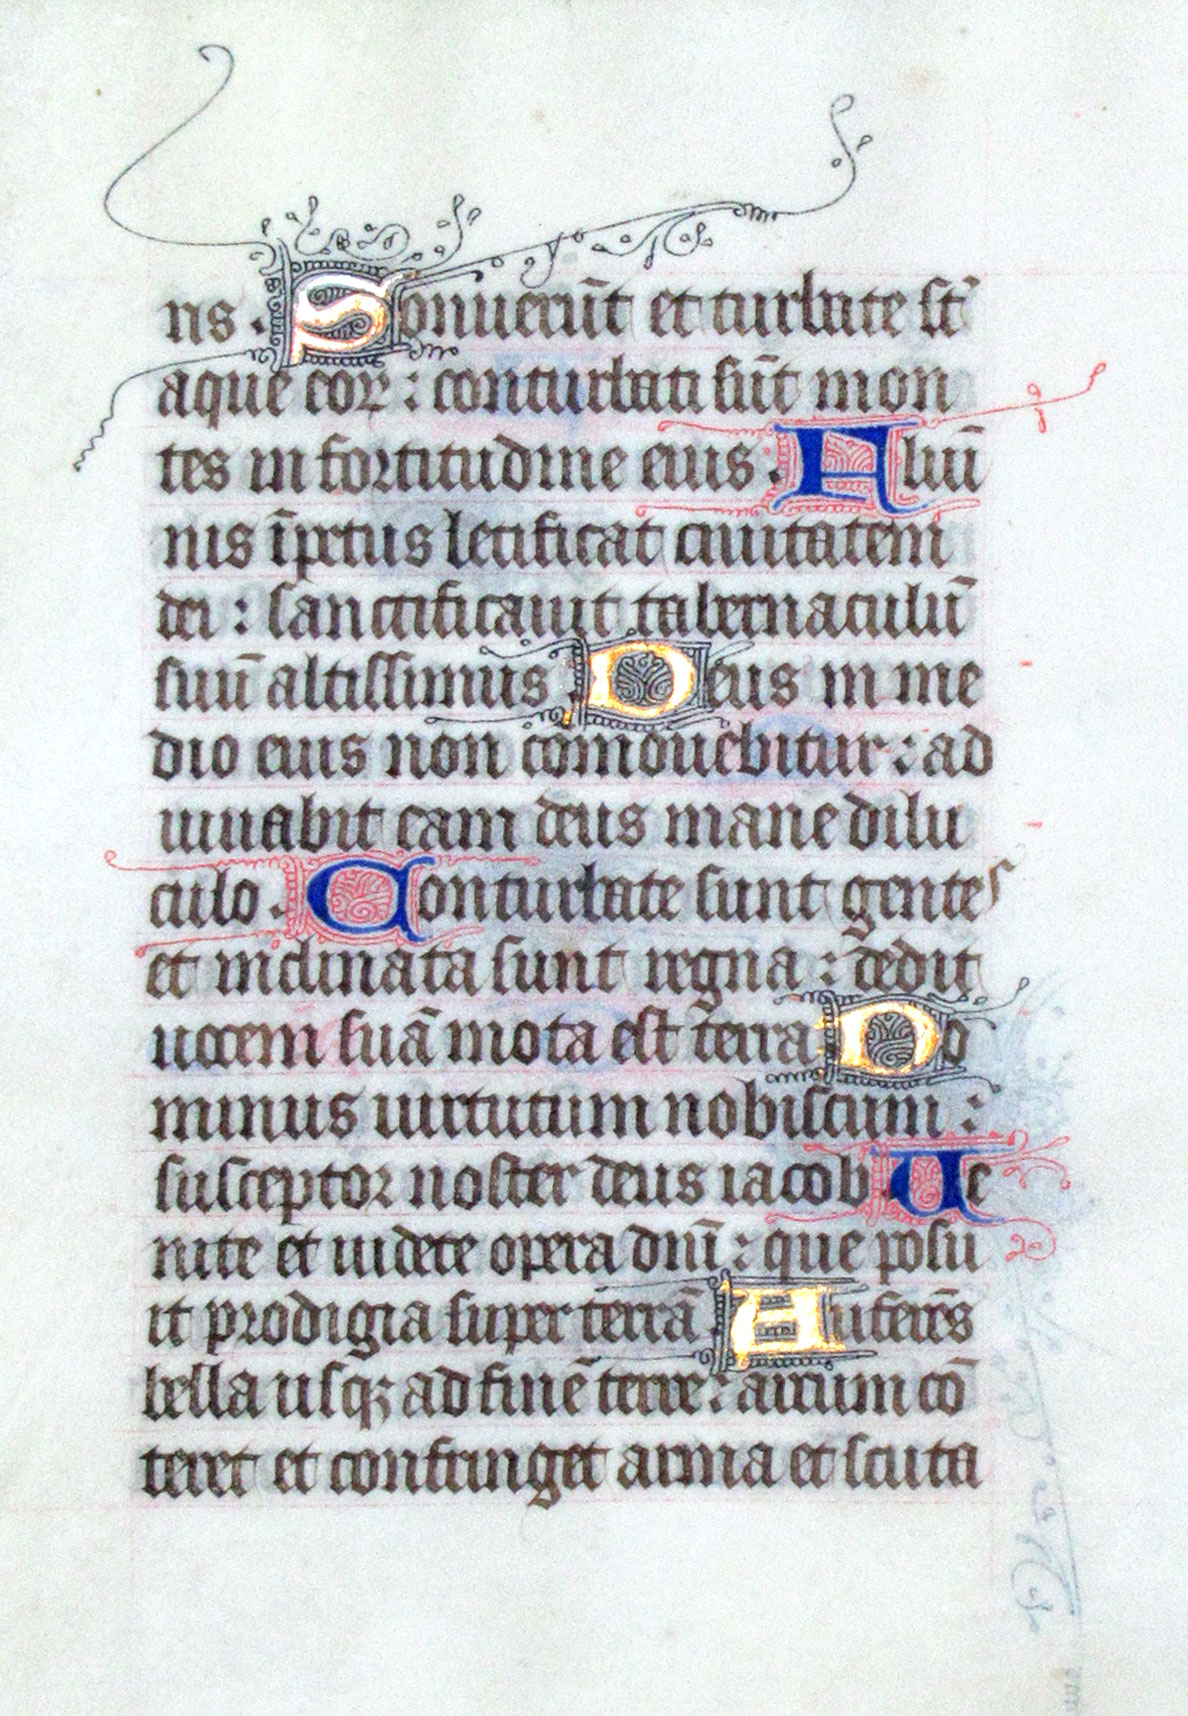 ris . Sonuerūt et turbate st̄
aque eor : conturbati sūt mon
tes in fortitudine eius . Aluī
nis īpetus letificat ciuitatem
dei : sanctificauit tabernaculū
suū altissimus . Deus in me
dio eius non comouebitur : ad
iuuabit eam deus mane dilu
culo . Conturbate sunt gentes
et inclinata sunt regna : dedit
uocem suā mota est terra Do
minus uirtutum nobiscum :
susceptor noster deus iacob . Ue
nite et uidete opera dn̄i : que posu
it prodigia super terrā . Auferēs
bella usqꝫ ad finē terre : arcum cō
teret et confringet arma et scuta